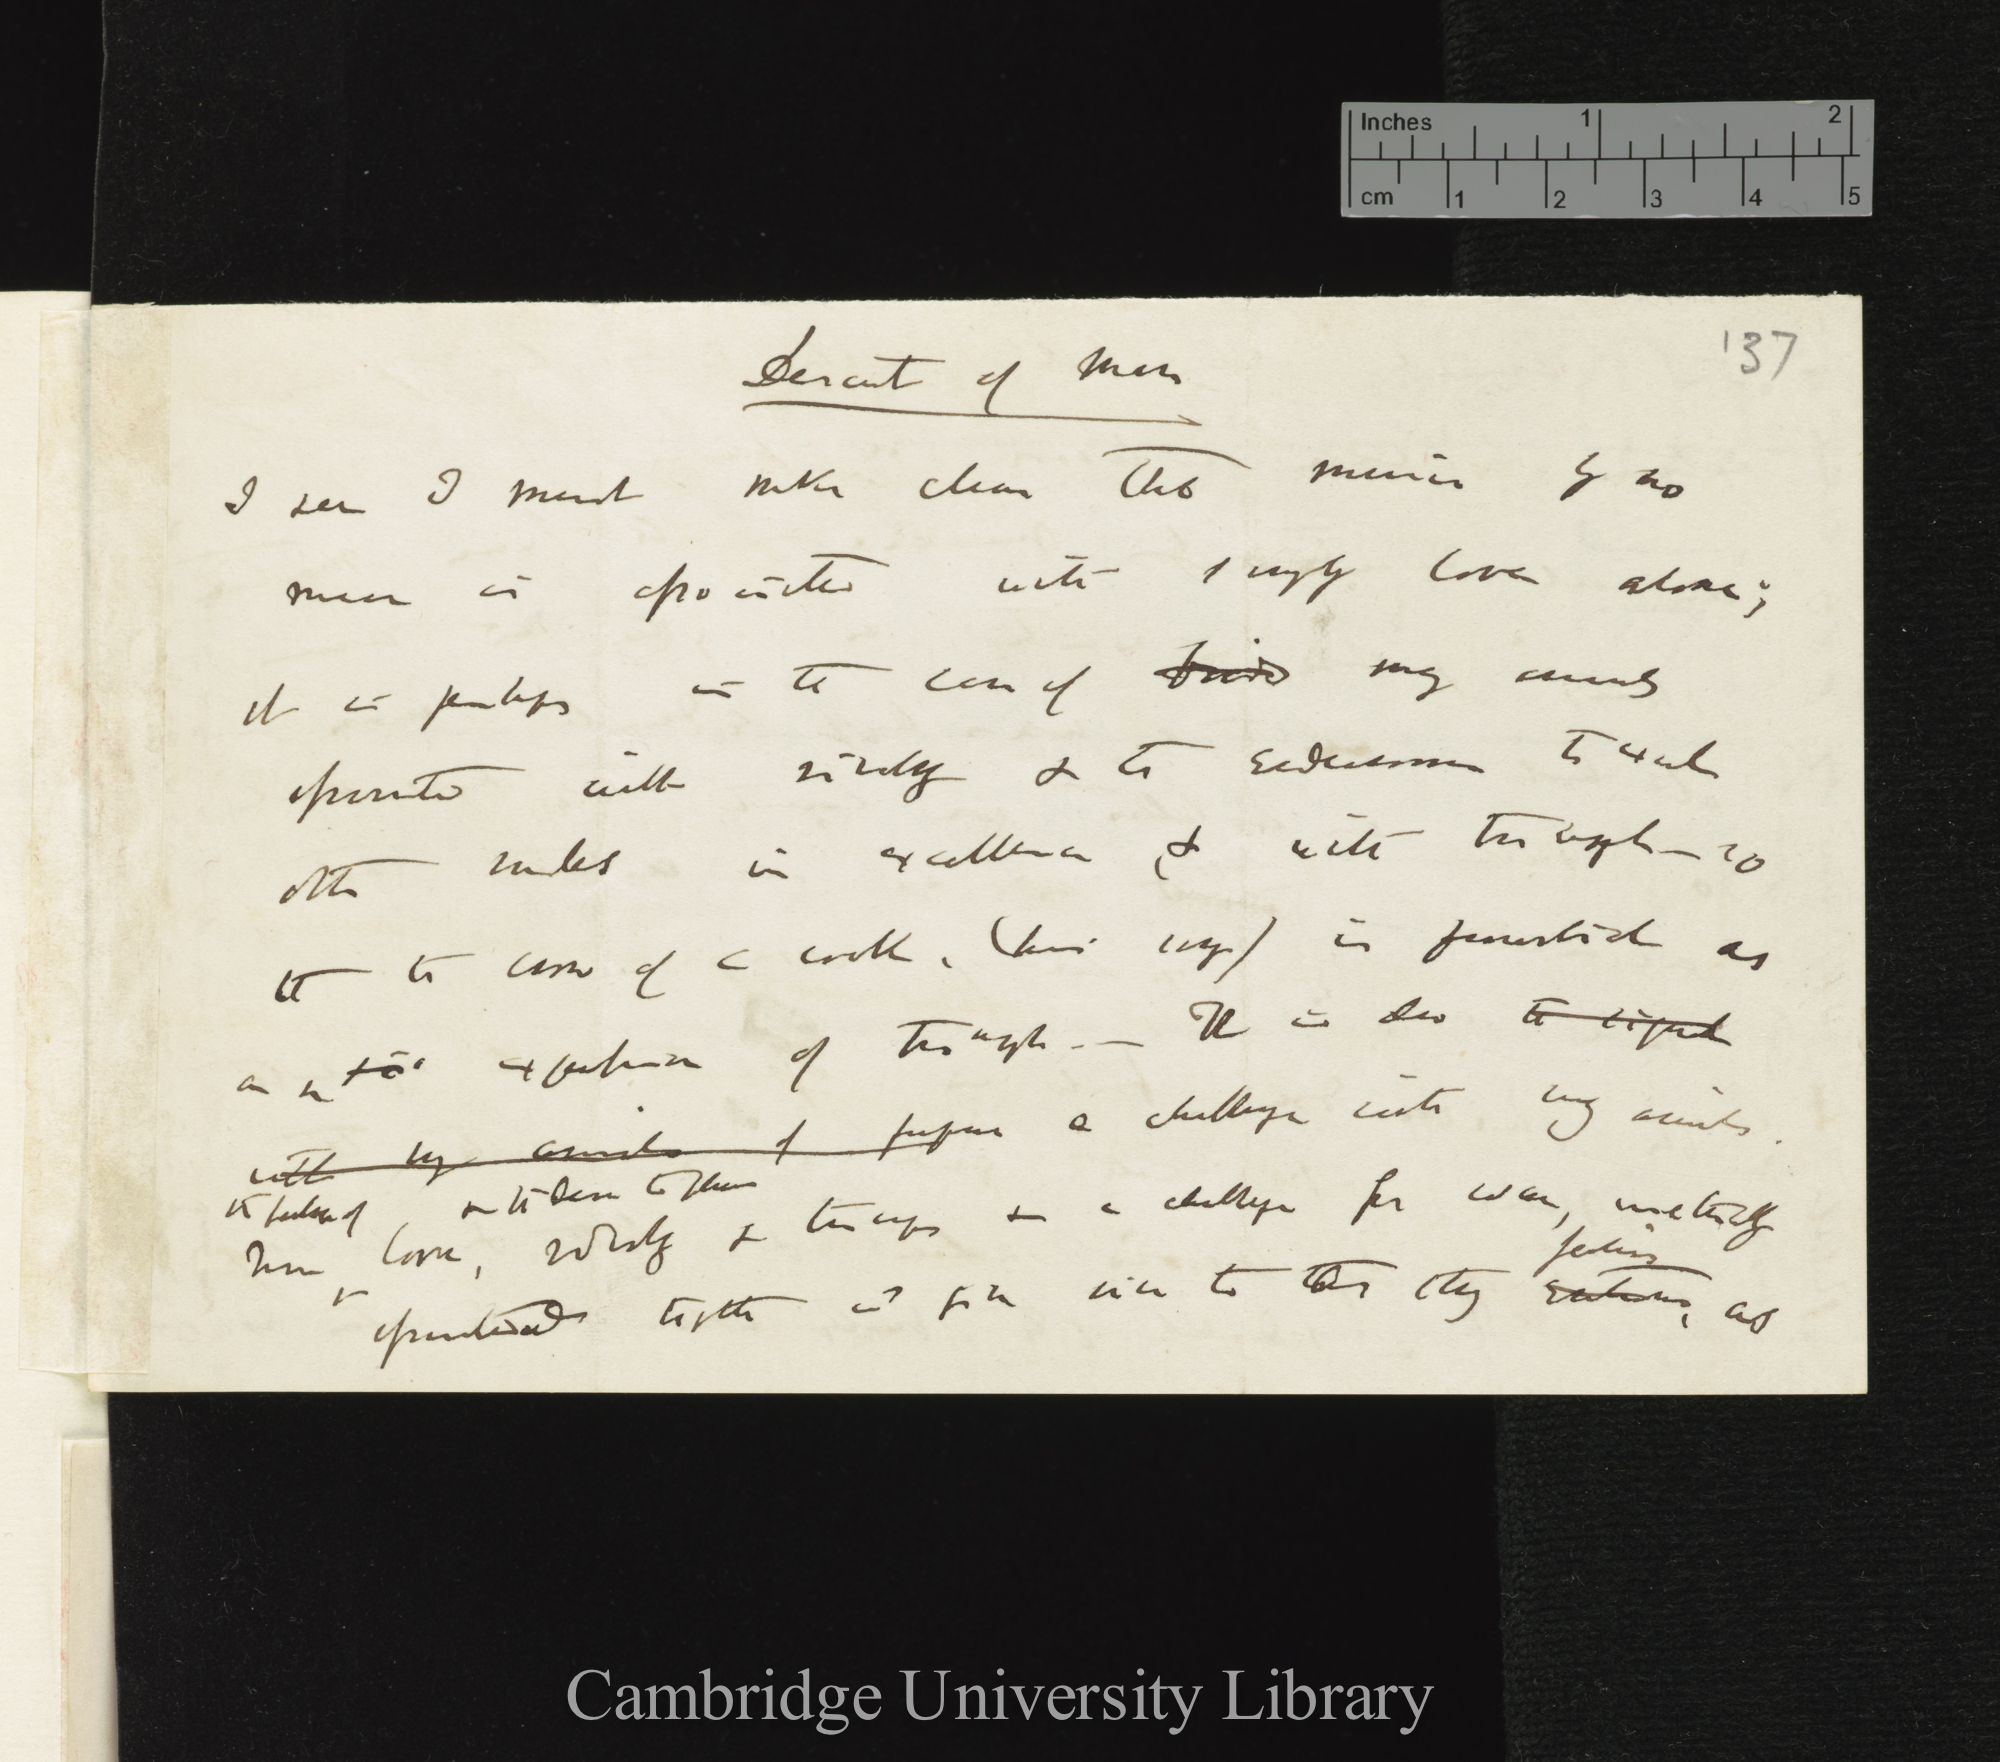 Inches 1 2
cm 1 2 3 4 5
137
Descent of Man
I see I must make clear that music by no
means is associated with simply love alone;
it is perhaps in the case of birds many animals
associated with rivalry & the endeavour to excel
other males in excellence & with triumph — so
the case of a cock, (his crow) is as
an expression of triumph. — It is also the signal
with many animals of a challenge with many animals.
the feeling of & the desire to please
Hence love, rivalry & triumph & a challenge for war,
feelings
associated together will give rise to these, as
Cambridge University Library